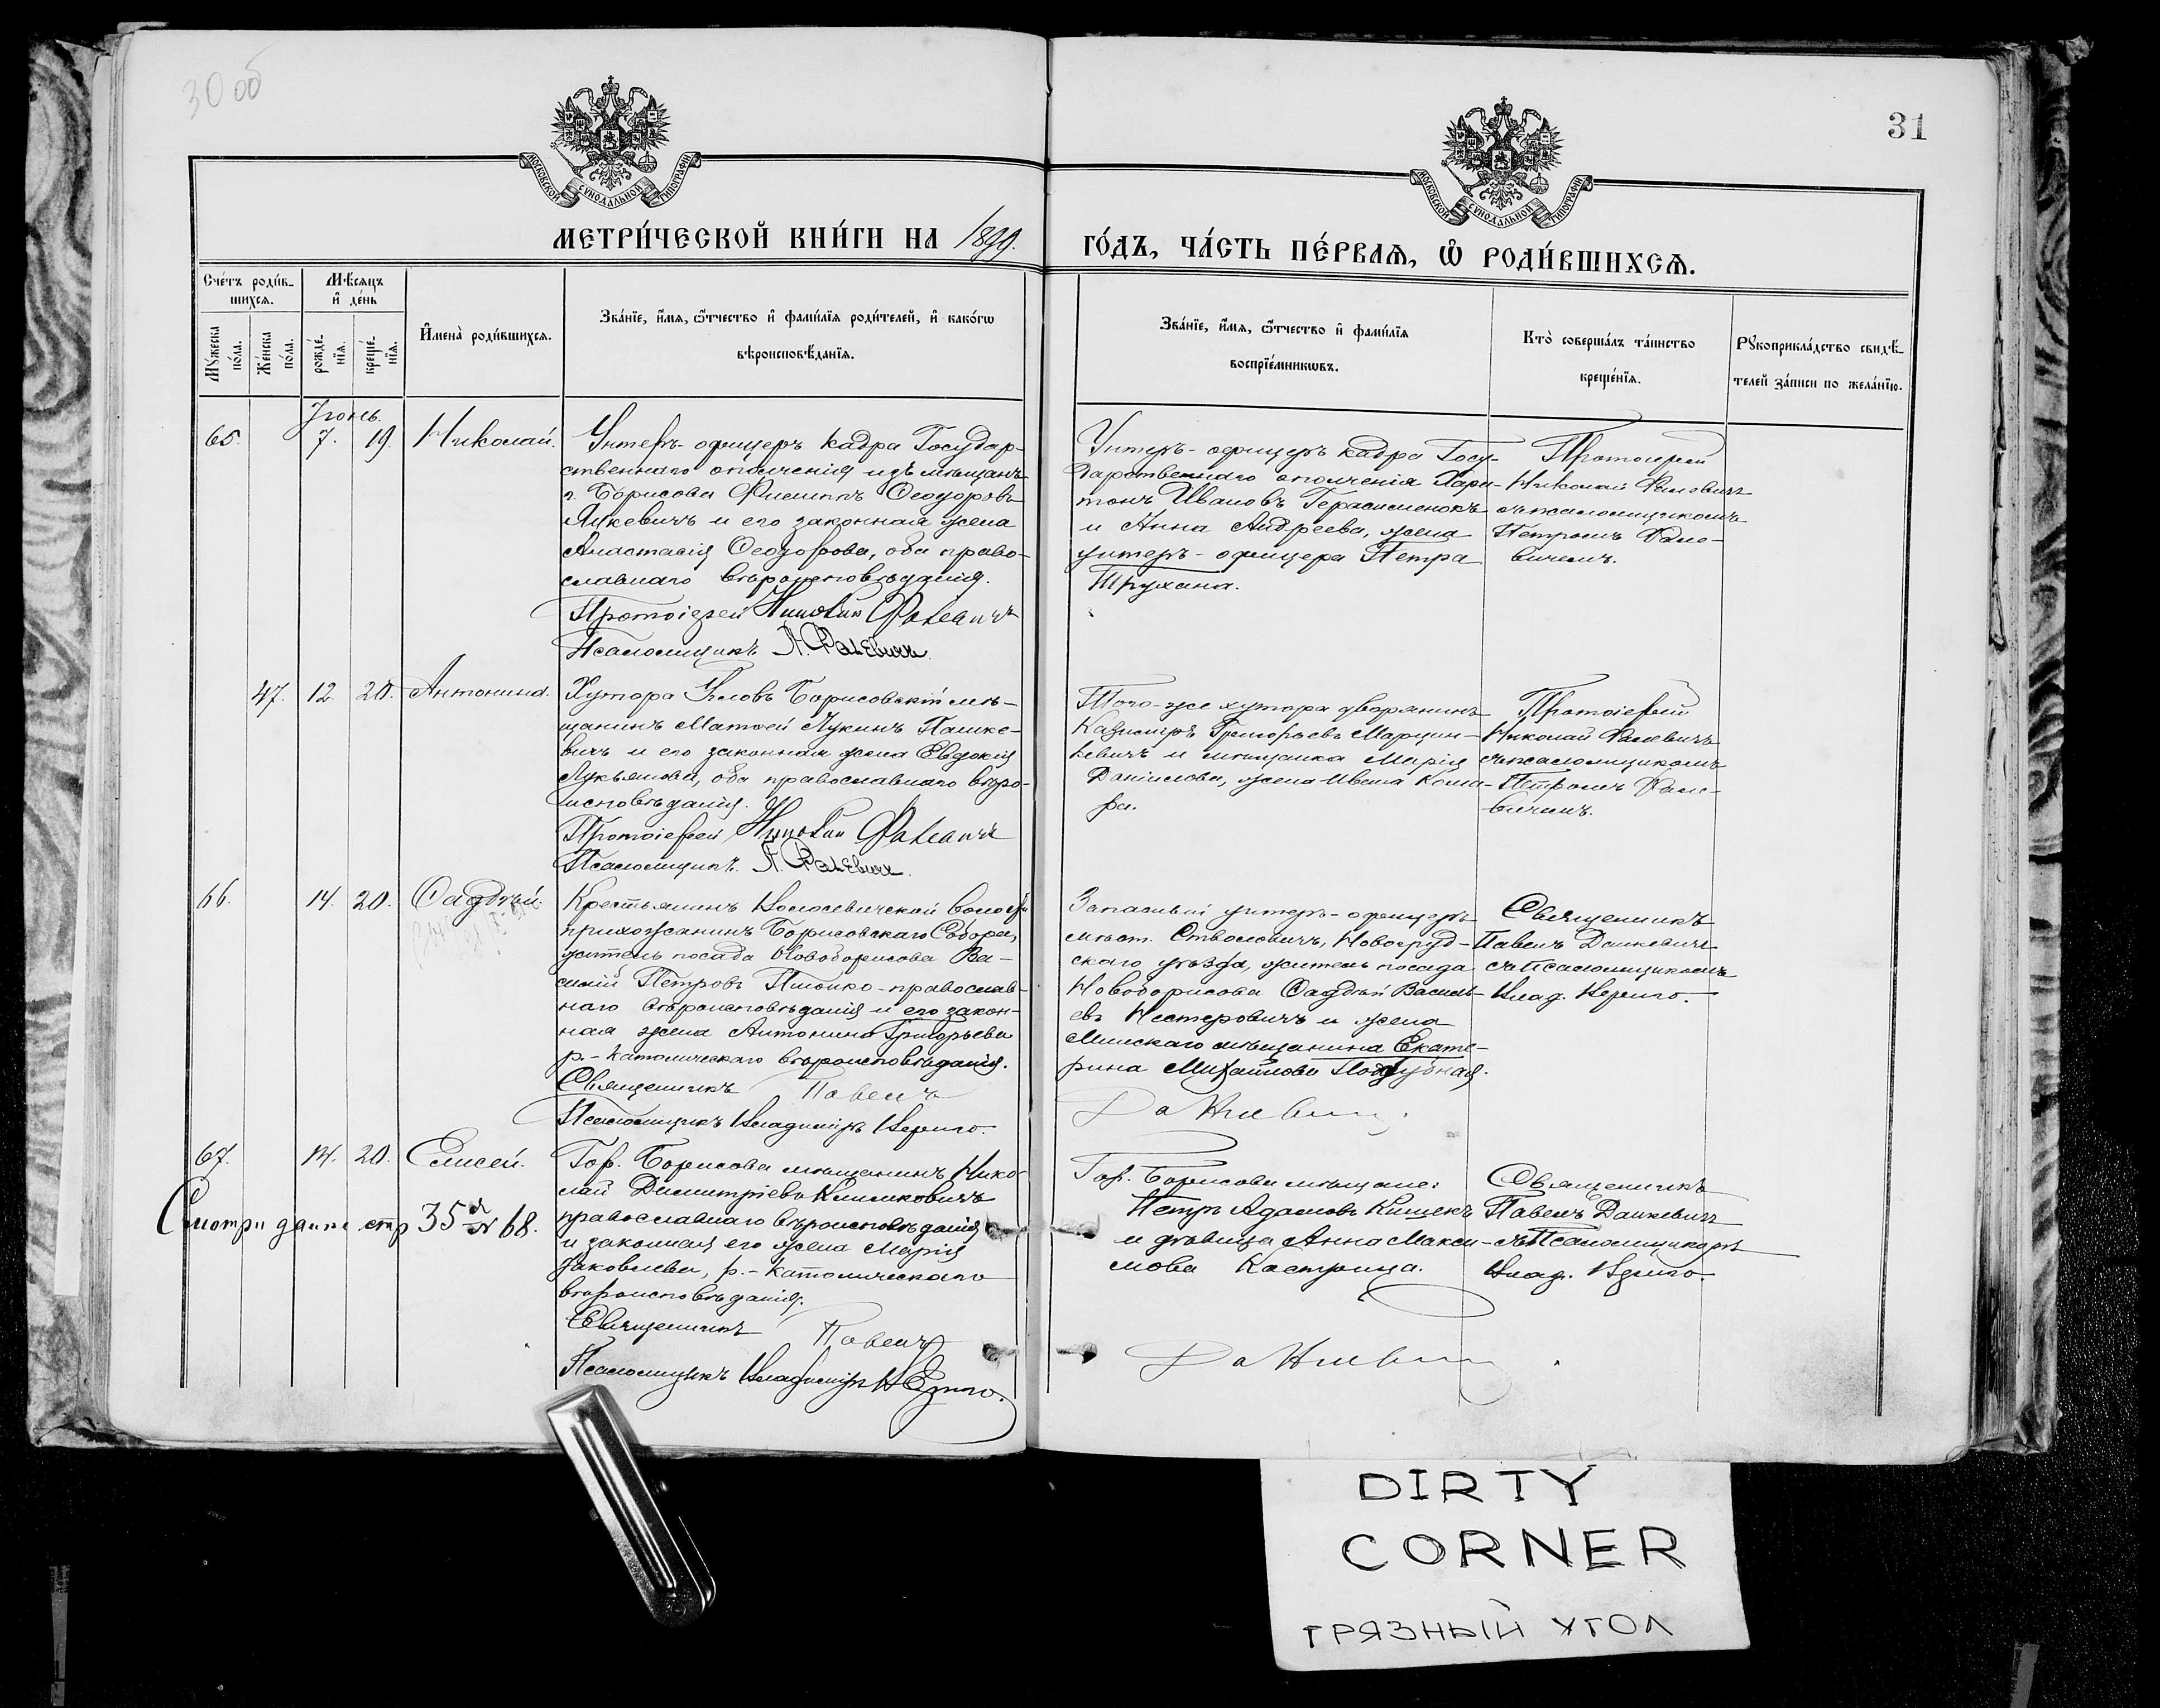 30 об
31
МОСКОВСКОЙ СѴНОДАЛЬНОЙ ТИПОГРАФІИ
МОСКОВСКОЙ СѴНОДАЛЬНОЙ ТИПОГРАФІИ
МЕТРИ́ЧЕСКОЙ КНИ́ГИ НА 1899.
ГО́ДЪ, ЧА́СТЬ ПЕ́РВАѦ, Ѡ҆ РОДИ́ВШИХСѦ.
Сче́тъ роди́в-
шихсѧ.
Мꙋ́жеска
по́ла.
Же́нска
по́ла.
Мѣ́сѧцъ
и҆ де́нь
рожде́-
нїѧ.
креще́-
нїѧ.
И҆мена̀ роди́вшихсѧ.
Зва́нїе, и҆́мѧ, ѻ҆́тчество и҆ фами́лїѧ роди́телей, и҆ како́гѡ
вѣроисповѣ́данїѧ.
Зва́нїе, и҆́мѧ, ѻ҆́тчество и҆ фами́лїѧ
воспрїе́мникѡвъ.
Кто̀ соверша́лъ та́инство
креще́нїѧ.
Рꙋкоприкла́дство свидѣ́-
телей за́писи по жела́нїю.
Іюнь
65. 7. 19. Николай.
Унтеръ-офицеръ кадра Государ-
ственнаго ополченія изъ мѣщанъ
г. Борисова Филиппъ Ѳеодоровъ
и его законная жена
Анастасія Ѳеодорова, оба право-
славнаго вѣроисповѣданія.
Протоіерей Николай Фалевичъ
Псаломщикъ П. Фалевичъ.
Унтеръ-офицеръ кадра Госу-
дарственнаго ополченія Хари-
тонъ Ивановъ Герасименокъ
и Анна Андреева, жена
унтеръ-офицера Петра
Трухана.
Протоіерей
Николай Фалевичъ
съ псаломщикомъ
Петромъ Фале-
вичемъ.
47. 12. 20. Антонина.
Хутора Угловъ Борисовскій мѣ-
щанинъ Матѳей Лукинъ Пашке-
вичъ и его законная жена Евдокія
Лукьянова, оба православнаго вѣро-
исповѣданія.
Протоіерей Николай Фалевичъ
Псаломщикъ П. Фалевичъ.
Того-же хутора дворянинъ
Казимиръ Григорьевъ Марцин-
кевичъ и мѣщанка Марія
Даніилова, жена Ивана Кома-
ра.
Протоіерей
Николай Фалевичъ
съ псаломщикомъ
Петромъ Фале-
вичемъ.
66. 14. 20. Ѳаддей.
Крестьянинъ волости
прихожанинъ Борисовскаго Собора,
житель посада Новоборисова Ва-
силій Петровъ православ-
наго вѣроисповѣданія и его закон-
ная жена Антонина Григорьева
р.-католическаго вѣроисповѣданія.
Священникъ Павелъ
Псаломщикъ Владиміръ
Запасный унтеръ-офицеръ
мѣст. Стволовичъ, Новогруд-
скаго уѣзда, житель посада
Новоборисова Ѳаддей Василь-
евъ Нестеровичъ и жена
Минскаго мѣщанина Екате-
рина Михайлова Поддубная.
Данкевичъ.
Священникъ
Павелъ Данкевичъ
съ Псаломщикомъ
Влад.
67. 14. 20. Елисей.
Смотри далѣе стр 35 № 68.
Гор. Борисова мѣщанинъ Нико-
лай Димитріевъ Климковичъ
православнаго вѣроисповѣданія
и законная его жена Марія
Яковлева, р.-католическаго
вѣроисповѣданія.
Священникъ Павелъ
Псаломщикъ Владиміръ
Гор. Борисова мѣщане:
Петръ Адамовъ Кищекъ
и дѣвица Анна Макси-
мова Кастрица.
Данкевичъ.
Священникъ
Павелъ Данкевичъ
съ Псаломщикомъ
Влад.
DIRTY
CORNER
ГРЯЗНЫЙ УГОЛ